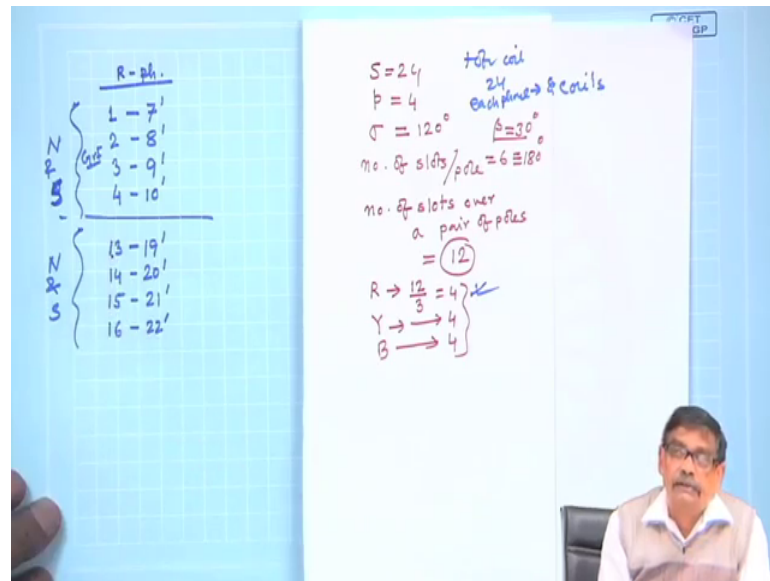 R - ph.
1 - 7'
2 - 8'
3 - 9'
4 - 10'
N & S
13 - 19'
14 - 20'
15 - 21'
16 - 22'
N & S
CET
GP
S = 24
p = 4
σ = 120°
β = 30°
total coil
24
each phase → 8 coils
no. of slots/pole = 6 ≡ 180°
no. of slots over
a pair of poles
= 12
R → 12/3 = 4
Y → 4
B → 4